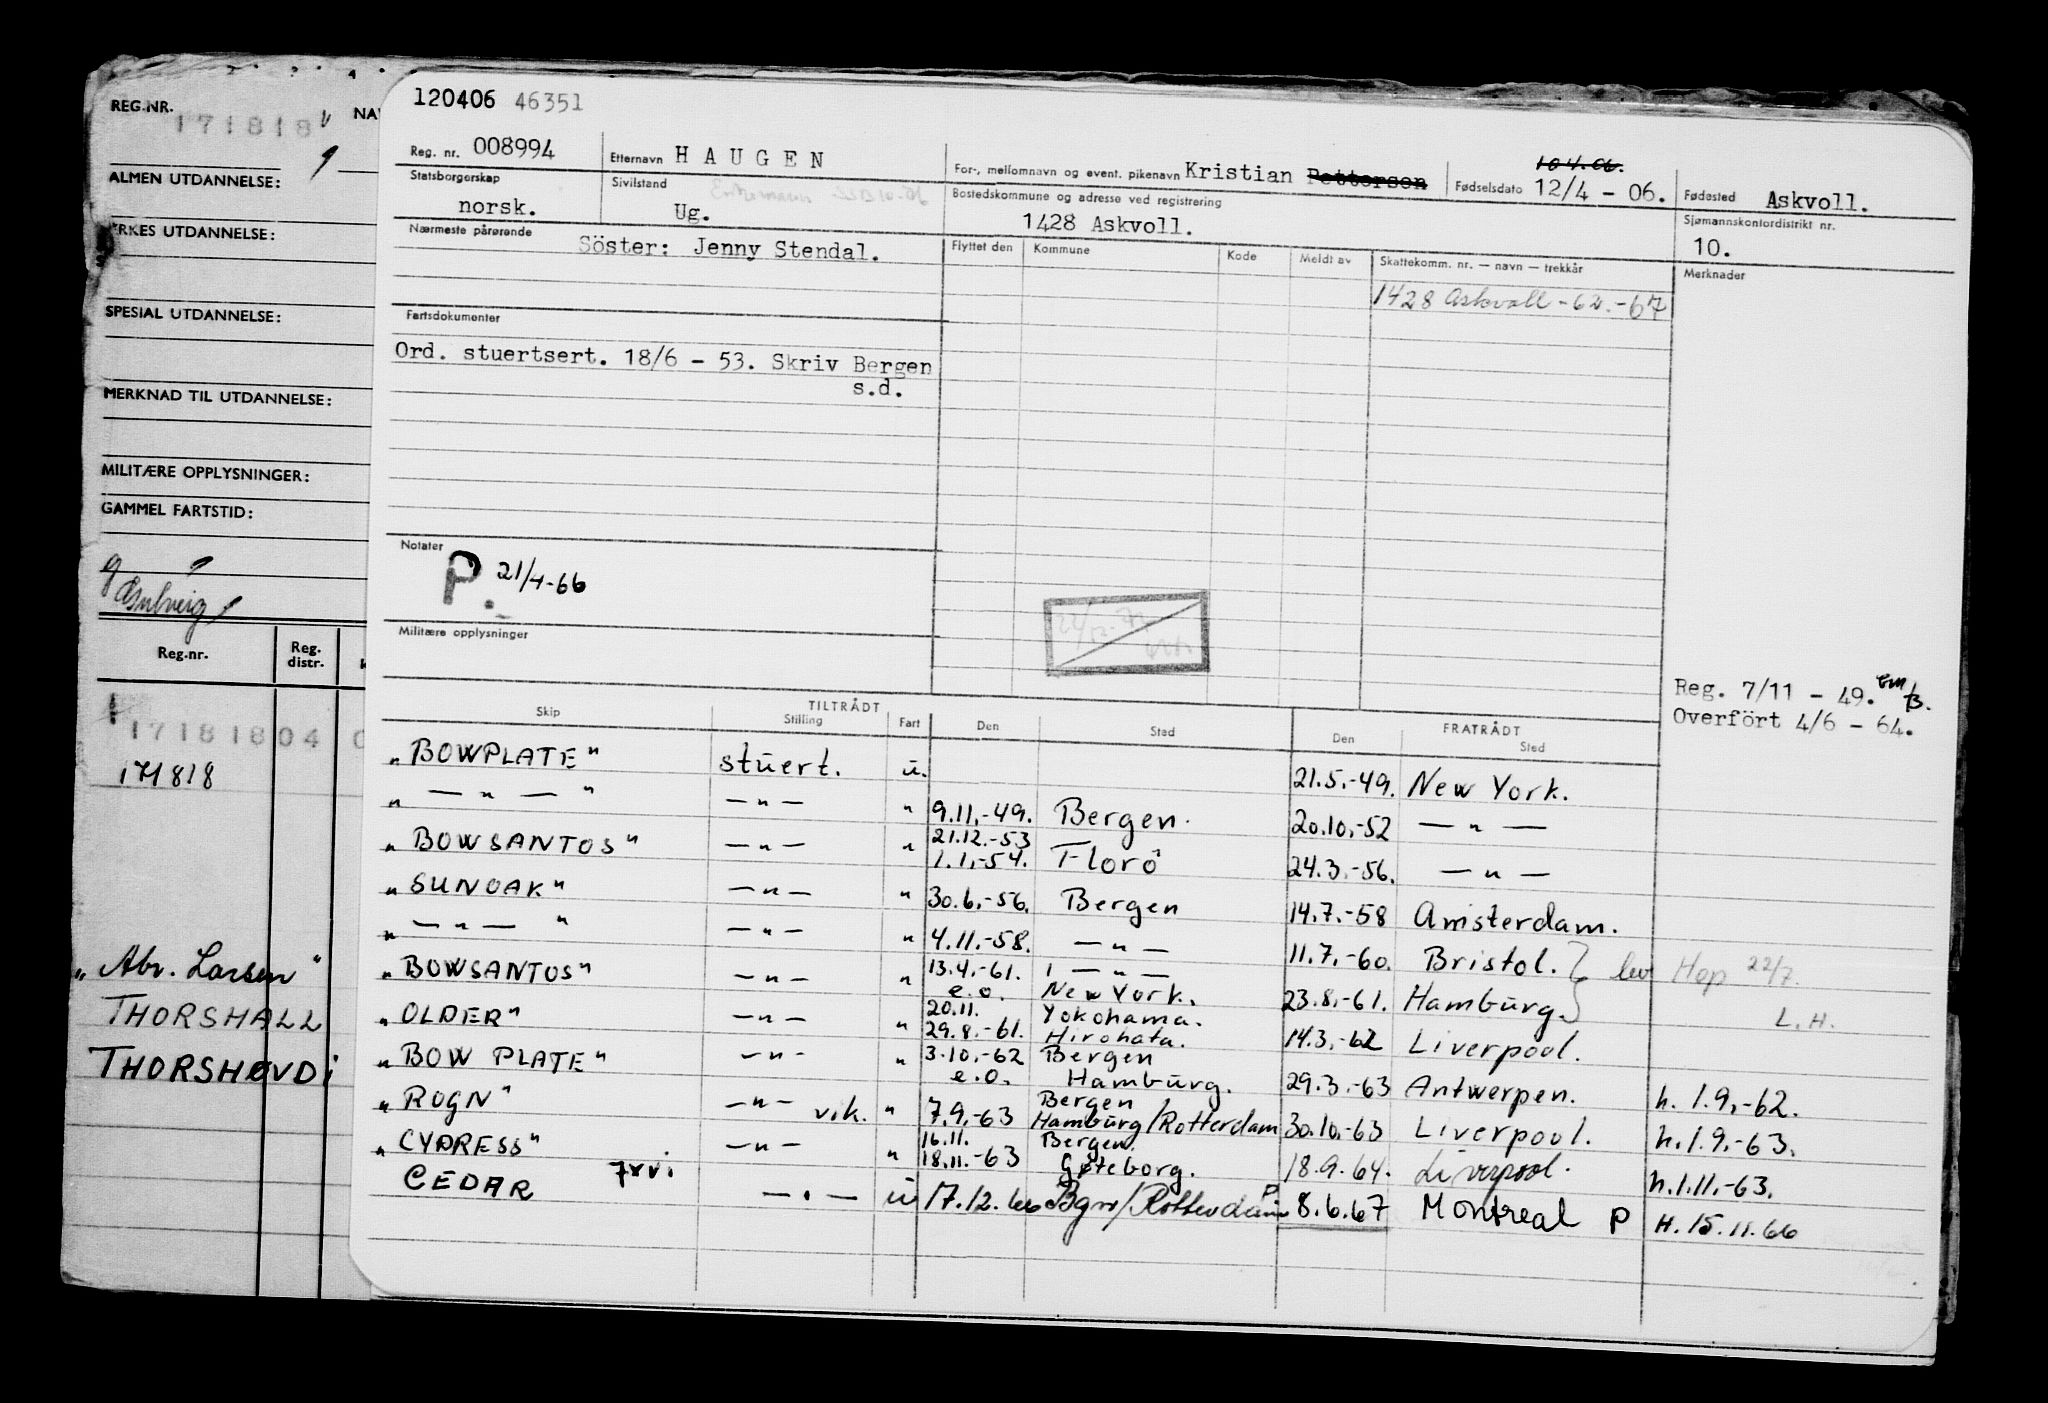 120406 46351
REG.NR.
171818
NA
ALMEN UTDANNELSE:
YRKES UTDANNELSE:
SPESIAL UTDANNELSE:
MERKNAD TIL UTDANNELSE:
MILITÆRE OPPLYSNINGER:
GAMMEL FARTSTID:
Reg.nr. Reg. distr.
17181804 0
171818
"Abr. Larsen"
THORSHALL
THORSHØVDI
Reg. nr. 008994 Etternavn HAUGEN For-, mellomnavn og event. pikenavn Kristian Pettersen Fødselsdato 12/4 - 06. Fødested Askvoll.
Statsborgerskap norsk. Sivilstand Ug. Bostedskommune og adresse ved registrering 1428 Askvoll. Sjømannskontordistrikt nr. 10.
Nærmeste pårørende Söster: Jenny Stendal. Flyttet den Kommune Kode Meldt av Skattekomm. nr. — navn — trekkår Merknader
1428 Askvoll -62.-67
Fartsdokumenter
Ord. stuertsert. 18/6 - 53. Skriv Bergen
s.d.
Notater
P. 21/4-66
Militære opplysninger
Reg. 7/11 - 49.
Overfört 4/6 - 64.
TILTRÅDT FRATRÅDT
Skip Stilling Fart Den Sted Den Sted
"BOWPLATE" stuert. u. 21.5.-49. New York.
" — " — " — " — " 9.11.-49. Bergen. 20.10.-52 — " —
"BOWSANTOS" — " — " 21.12.-53 1.1.-54. Florö 24.3.-56. — " —
"SUNOAK" — " — " 30.6.-56. Bergen 14.7.-58 Amsterdam.
" — " — " — " — " 4.11.-58. — " — 11.7.-60. Bristol. } lev Hop 22/7.
"BOWSANTOS" — " — " 13.4.-61. — " — e.o. New York. 23.8.-61. Hamburg. L.H.
"OLDER" — " — " 20.11. Yokohama. 29.8.-61. Hirohata. 14.3.-62 Liverpool.
"BOW PLATE" — " — " 3.10.-62 Bergen e.o. Hamburg. 29.3.-63 Antwerpen. h. 1.9.-62.
"ROGN" — " — vik. " 7.9.-63 Bergen Hamburg/Rotterdam 30.10.-63 Liverpool. h. 1.9.-63.
"CYPRESS" — " — " 16.11. Bergen. 18.11.-63 Gøteborg. 18.9.64. Liverpool. h. 1.11.-63.
CEDAR 7xvi — " — u 17.12.66 Bgn/Rotterdam P 8.6.67 Montreal P H. 15.11.66